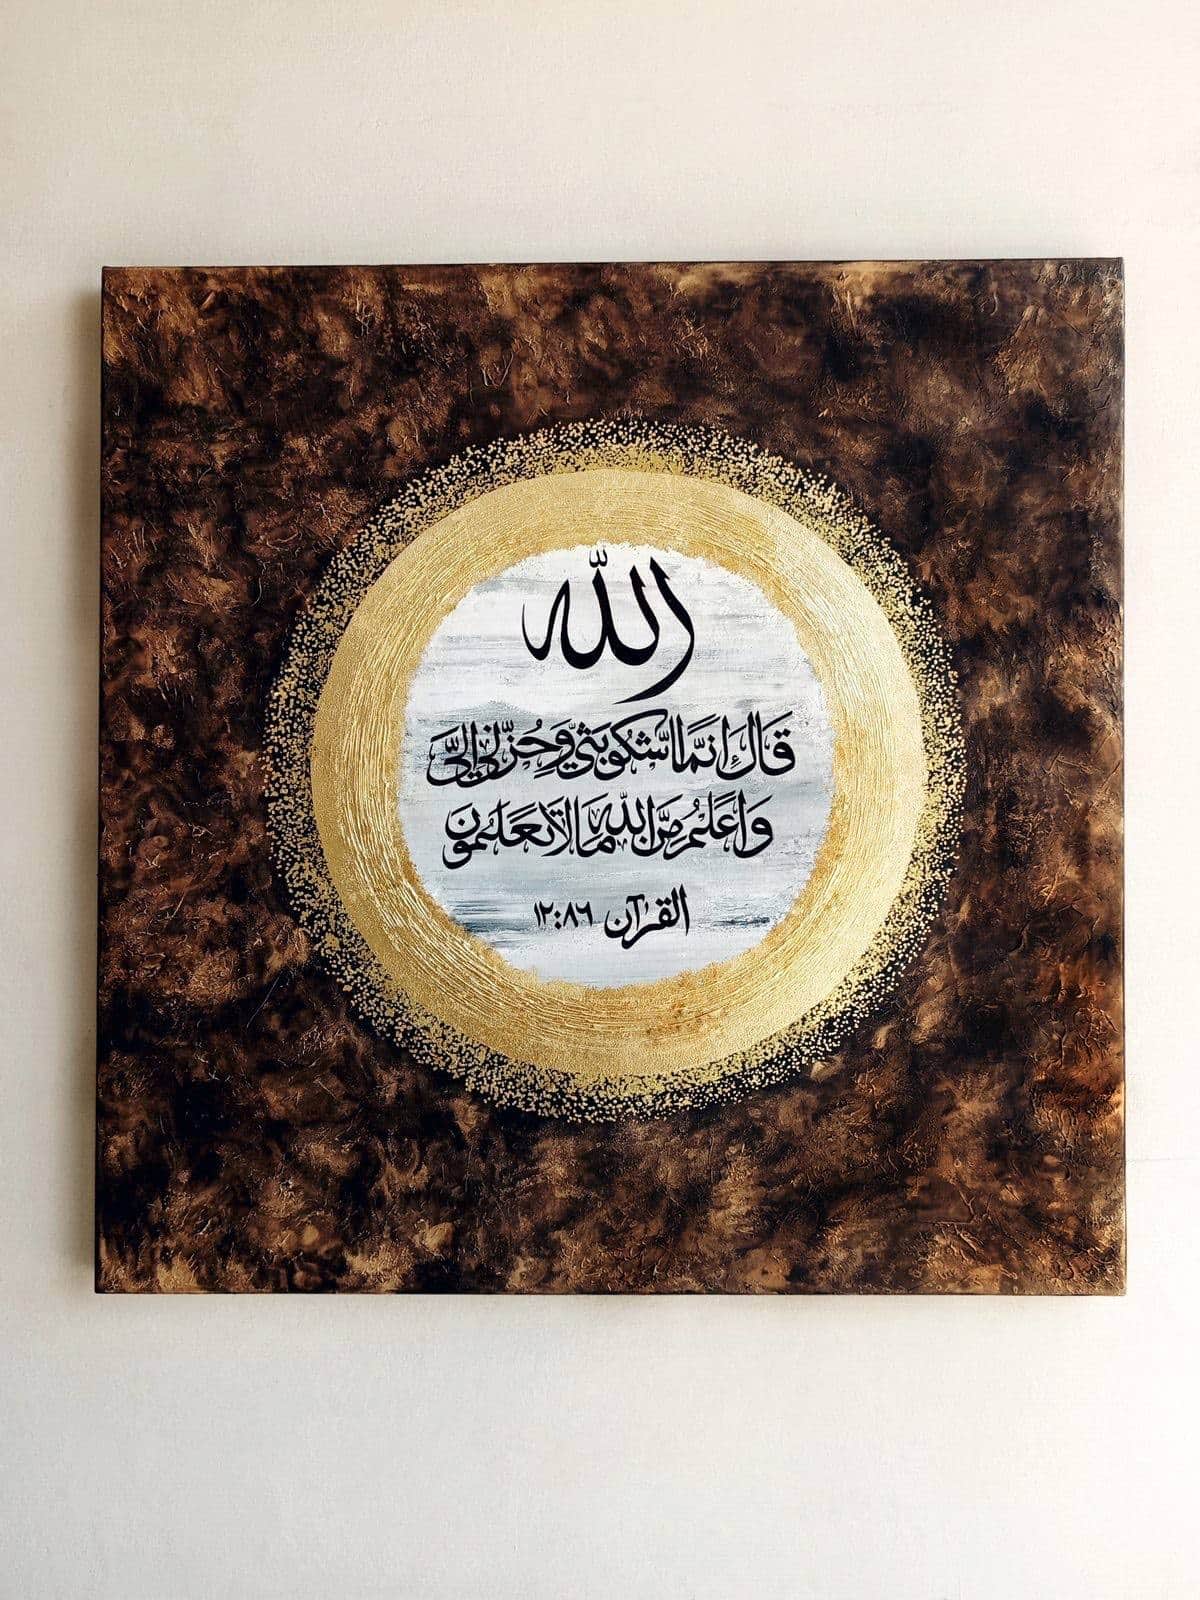 الله
قَالَ إِنَّمَا أَشْكُو بَثِّي وَحُزْنِي إِلَى
وَأَعْلَمُ مِنَ اللهِ مَا لَا تَعْلَمُونَ
القرآن ١٢:٨٦